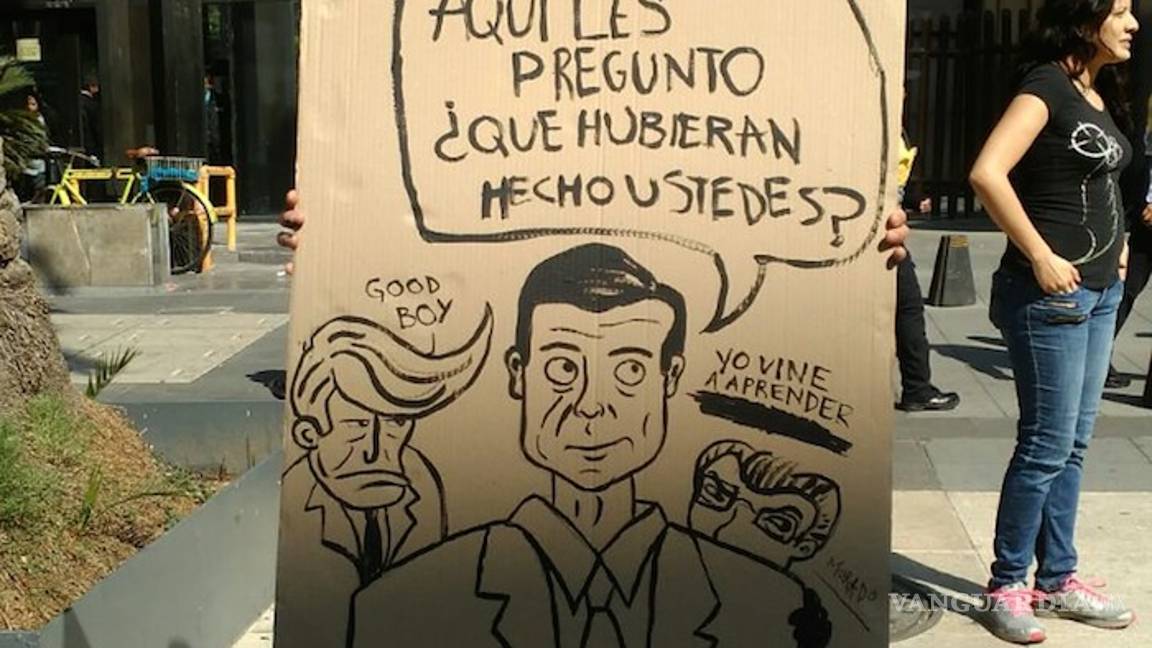 AQUÍ LES
PREGUNTO
¿QUE HUBIERAN
HECHO USTEDES?
GOOD
BOY
YO VINE
A APRENDER
VANGUARDIA